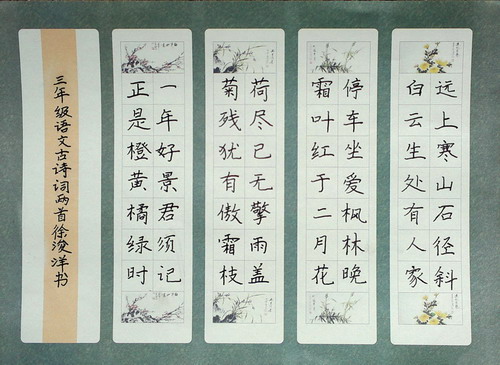 远上寒山石径斜
白云生处有人家
停车坐爱枫林晚
霜叶红于二月花
荷尽已无擎雨盖
菊残犹有傲霜枝
一年好景君须记
正是橙黄橘绿时
三年级语文古诗词两首徐浚洋书